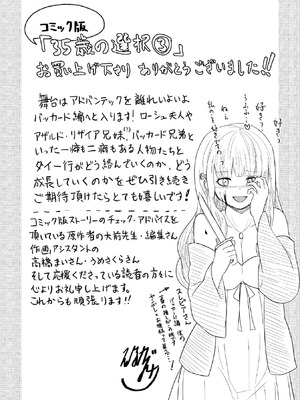 コミック版
「35歳の選択③」
お買い上げ下さり ありがとうございました!!
舞台はアドバンテックを離れいよいよ
パッカード編へと入ります! ローシュ夫人や
アザルド・リザイア兄妹(?)パッカード兄弟と
いった一癖も二癖もある人物たちと
タイ一行がどう絡んでいくのか、どう
成長していくのかをぜひ引き続き
ご期待頂けたらとても嬉しいです!
コミック版ストーリーのチェック、アドバイスを
頂いている原作者の大前先生・編集さん
作画アシスタントの
高橋まいさん・うめさくらさん
そして応援くださっている読者の方々に
心よりお礼申し上げます。
これからも頑張ります!!
好きっ
好きっ
うふふ
ねぇ